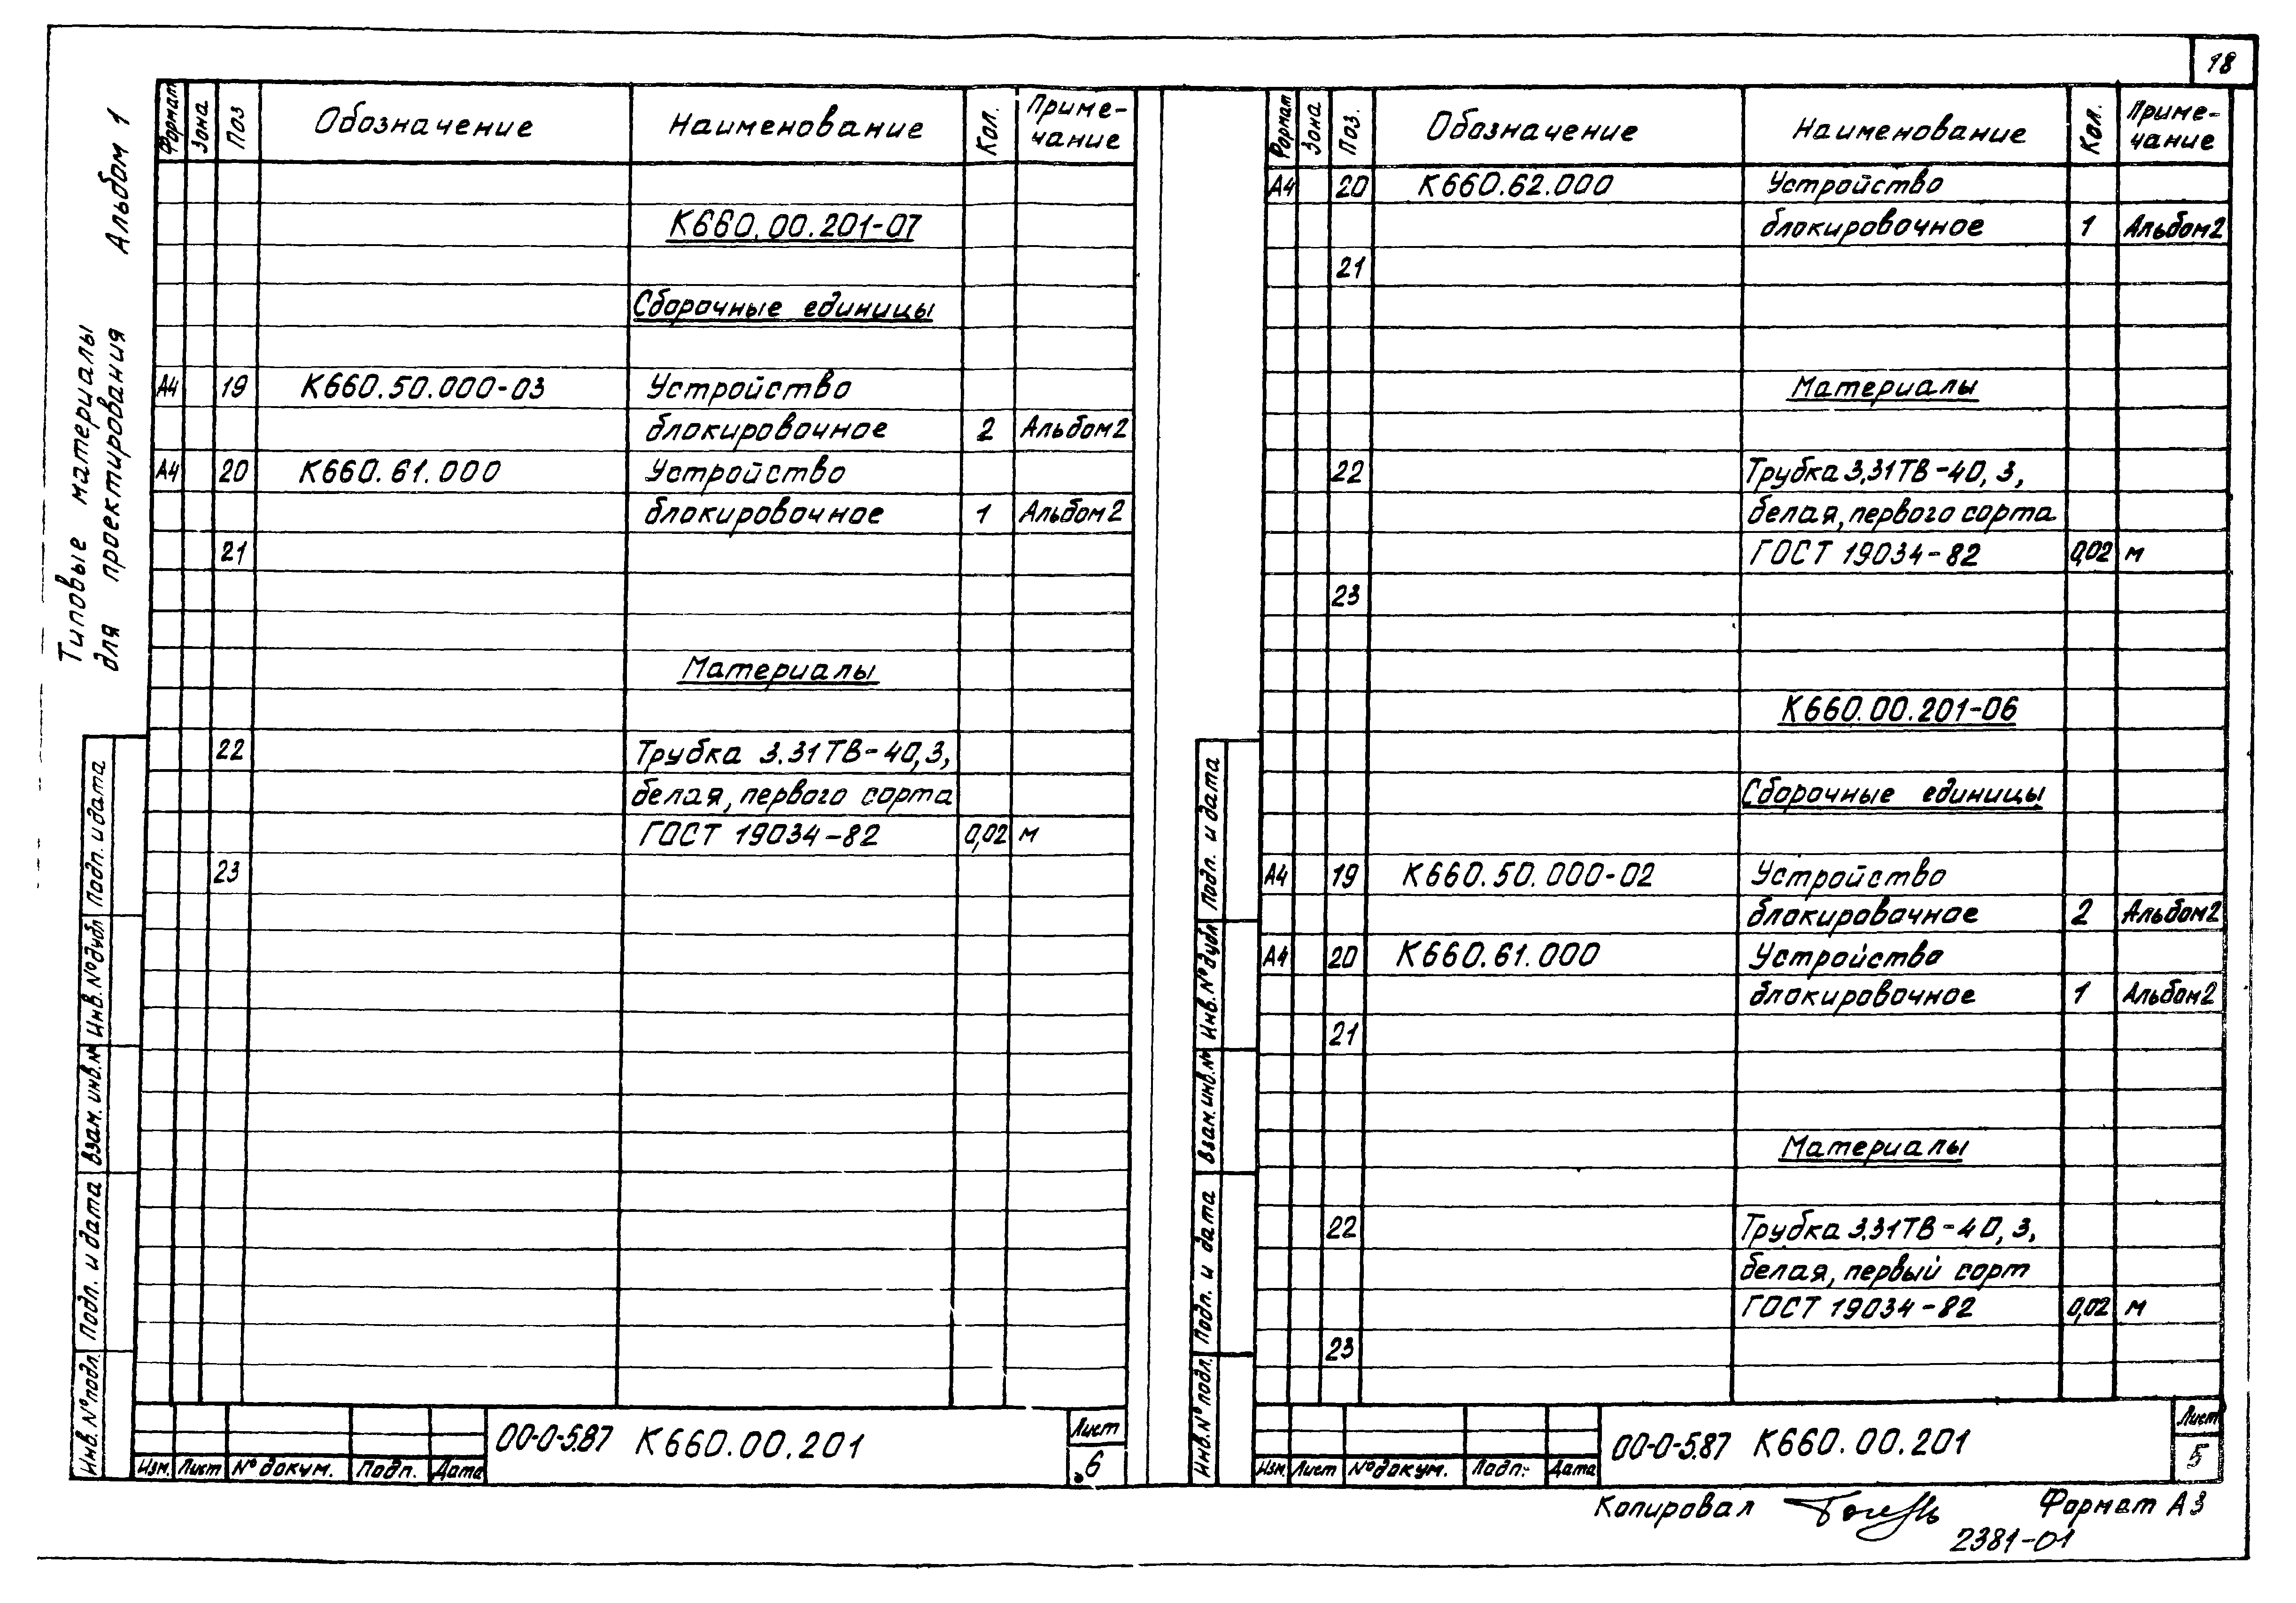 18
Типовые материалы
для проектирования
Альбом 1
Формат Зона Поз Обозначение Наименование Кол. Приме-
чание
К660.00.201-07
Сборочные единицы
А4 19 К660.50.000-03 Устройство
блокировочное 2 Альбом2
А4 20 К660.61.000 Устройство
блокировочное 1 Альбом2
21
Материалы
22 Трубка 3.31ТВ-40,3,
белая, первого сорта
ГОСТ 19034-82 0,02 м
23
Инв.№подл. Подп. и дата Взам.инв.№ Инв.№дубл Подп. и дата
Изм. Лист №докум. Подп. Дата
00-0-5.87 К660.00.201
Лист
6
Формат Зона Поз. Обозначение Наименование Кол. Приме-
чание
А4 20 К660.62.000 Устройство
блокировочное 1 Альбом2
21
Материалы
22 Трубка 3.31ТВ-40,3,
белая, первого сорта
ГОСТ 19034-82 0,02 м
23
К660.00.201-06
Сборочные единицы
А4 19 К660.50.000-02 Устройство
блокировочное 2 Альбом2
А4 20 К660.61.000 Устройство
блокировочное 1 Альбом2
21
Материалы
22 Трубка 3.31ТВ-40,3,
белая, первый сорт
ГОСТ 19034-82 0,02 м
23
Инв.№подл. Подп. и дата Взам.инв.№ Инв.№дубл Подп. и дата
Изм. Лист №докум. Подп. Дата
00-0-5.87 К660.00.201
Лист
5
Копировал Формат А3
2381-01